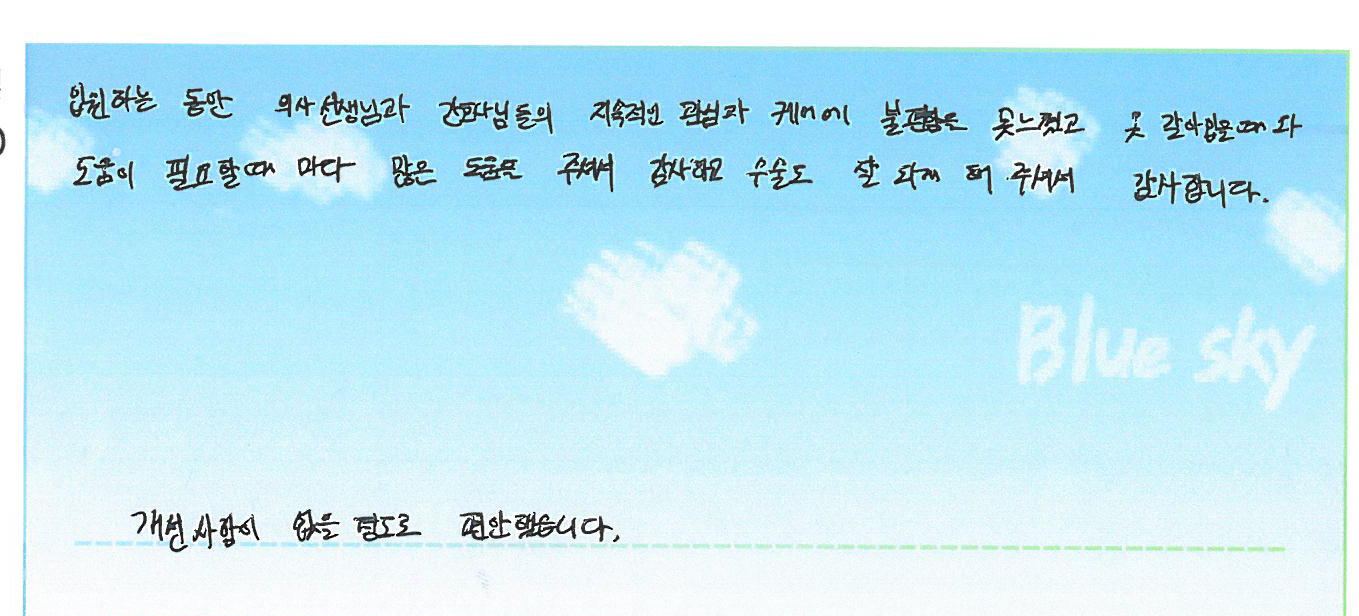 입원하는 동안 의사선생님과 간호사님들의 지속적인 관심과 케어에 불편함은 못느꼈고 옷 갈아입을때와
도움이 필요할때 마다 많은 도움을 주셔서 감사하고 수술도 잘 되게 해 주셔서 감사합니다.
Blue sky
개선사항이 없을 정도로 편안했습니다.